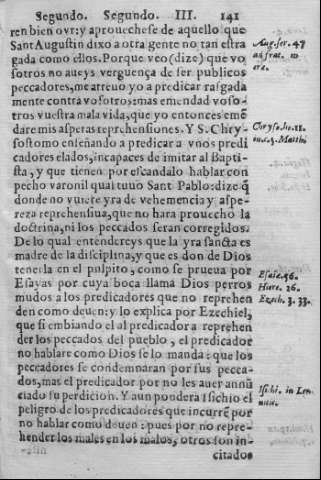 Segundo. Segundo. III. 141
ren bien oyr: y aprouechese de aquello que
Sant Augustin dixo a otra gente no tan estra
gada como ellos. Porque veo (dize) que vo
sotros no aueys verguença de ser publicos
peccadores, me atreuo yo a predicar rasgada
mente contra vosotros: mas emendad voso-
tros vuestra mala vida, que yo entonces emẽ
dare mis asperas reprehensiones. Y S. Chry-
sostomo enseñando a predicar a vnos predi
cadores elados, incapaces de imitar al Bapti-
sta, y que tienen por escandalo hablar con
pecho varonil qual tuuo Sant Pablo: dize q̃
donde no vuiere yra de vehemencia y aspe-
reza reprehensiua, que no hara prouecho la
doctrina, ni los peccados seran corregidos.
De lo qual entendereys que la yra sancta es
madre de la disciplina, y que es don de Dios
tenerla en el pulpito, como se prueua por
Esayas por cuya boca llama Dios perros
mudos a los predicadores que no reprehen
den como deuen: y lo explica por Ezechiel,
que si embiando el al predicador a reprehen
der los peccados del pueblo, el predicador
no hablare como Dios se lo manda: que los
peccadores se condemnaran por sus pecca-
dos, mas el predicador por no les auer annũ
ciado su perdicion. Y aun pondera Isichio el
peligro de los predicadores que incurrẽ por
no hablar como deuen: pues por no repre-
hender los males en los malos, otros son in-
citados
Aug. ser. 47
ad frat. in
ere.
Chryso. ho. 11.
in c. 3. Matthi
Esaie. 56.
Hiere. 26.
Ezech. 3. 33.
Isichi. in Leui